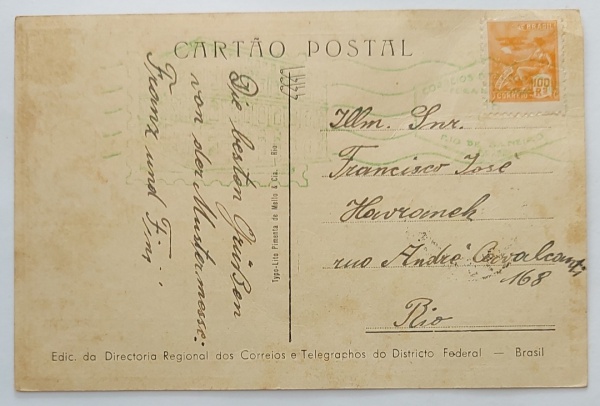 CARTÃO POSTAL
BRASIL
100
RS
CORREIO
Die besten Grüßen
von der Mustermesse:
Franz und Fini
Typo-Lito Pimenta de Mello & Cia. — Rio
Illm. Snr.
Francisco José
Havranek
rua André Cavalcanti
168
Rio
Edic. da Directoria Regional dos Correios e Telegraphos do Districto Federal — Brasil